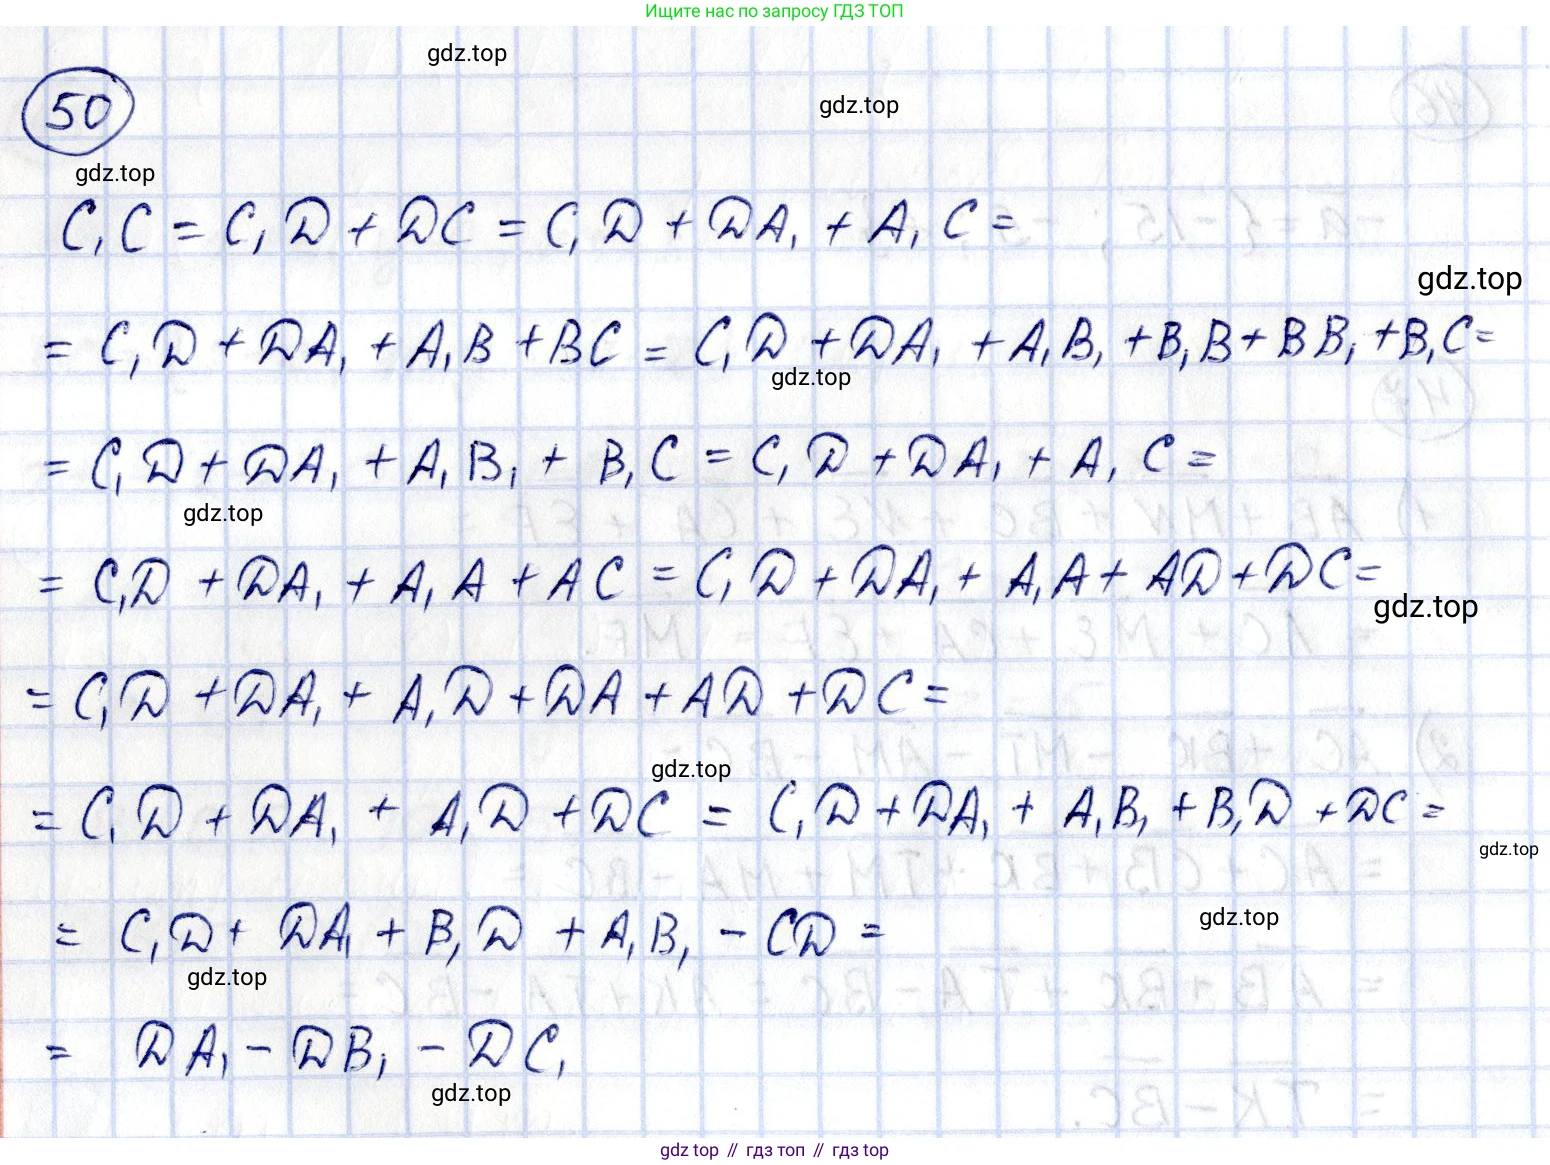 Ищите нас по запросу ГДЗ ТОП
gdz.top
gdz.top
50
gdz.top
C₁C = C₁D + DC = C₁D + DA₁ + A₁C =
gdz.top
= C₁D + DA₁ + A₁B + BC = C₁D + DA₁ + A₁B₁ + B₁B + BB₁ + B₁C =
gdz.top
= C₁D + DA₁ + A₁B₁ + B₁C = C₁D + DA₁ + A₁C =
gdz.top
= C₁D + DA₁ + A₁A + AC = C₁D + DA₁ + A₁A + AD + DC =
gdz.top
= C₁D + DA₁ + A₁D + DA + AD + DC =
gdz.top
= C₁D + DA₁ + A₁D + DC = C₁D + DA₁ + A₁B₁ + B₁D + DC =
gdz.top
gdz.top
= C₁D + DA₁ + B₁D + A₁B₁ - CD =
gdz.top
= DA₁ - DB₁ - DC₁
gdz.top
gdz top // гдз топ // гдз top